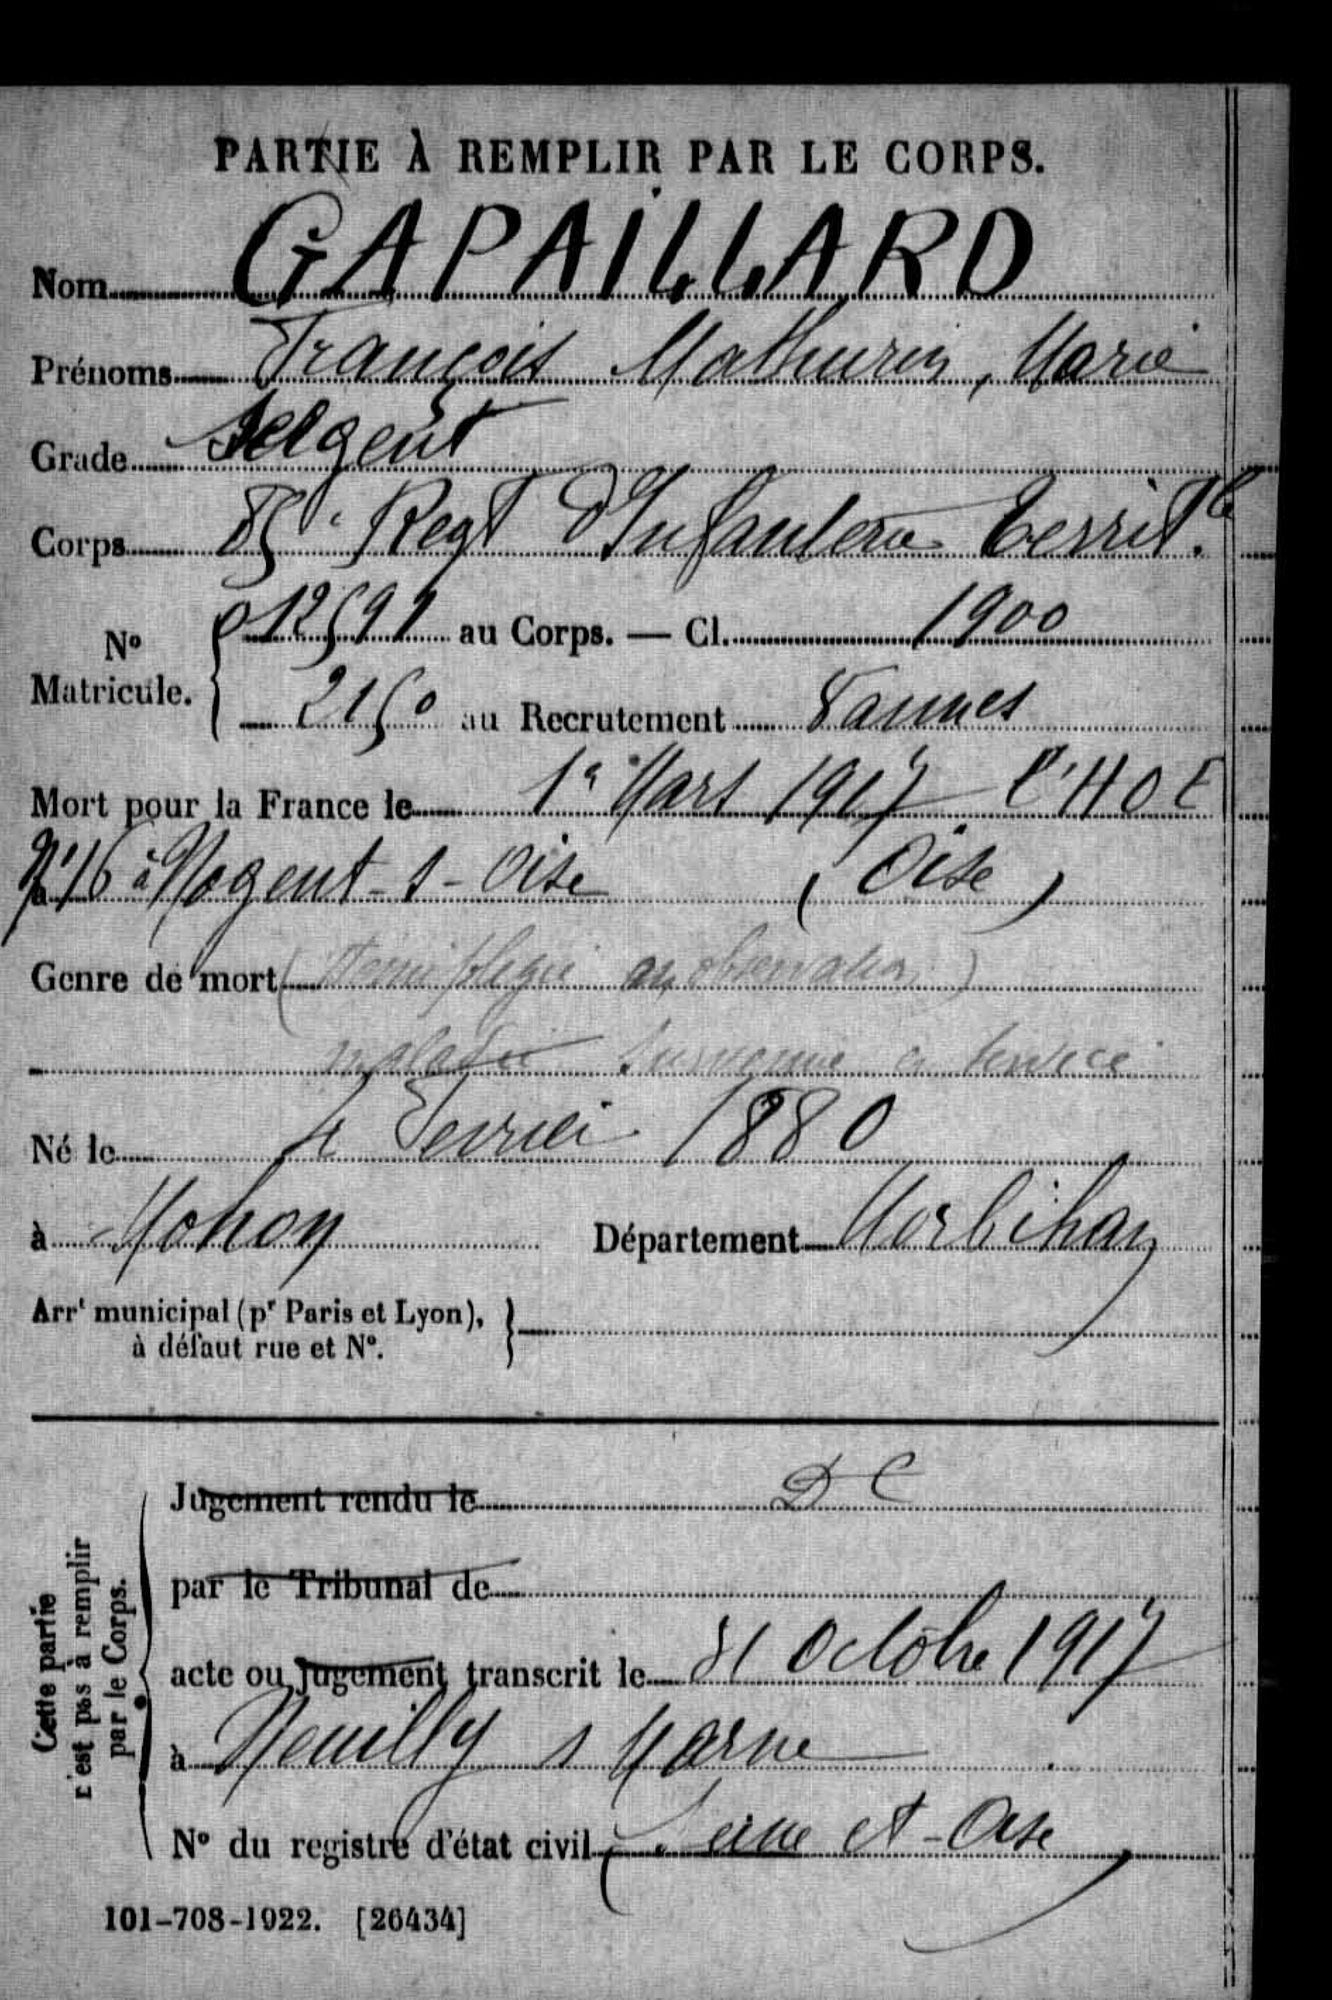 PARTIE À REMPLIR PAR LE CORPS.
Nom GAPAILLARD
Prénoms François Mathurin, Marie
Grade Sergent
Corps 85e Regt d'Infanterie Territle
No Matricule. 012591 au Corps. — Cl. 1900
2150 au Recrutement Vannes
Mort pour la France le 1er Mars 1917 l'HOE
No 16 à Nogent-s-Oise (Oise)
Genre de mort (Hémiplégie en observation)
maladie survenue en service
Né le 4 Fevrier 1880
à Mohon Département Morbihan
Arrt municipal (pr Paris et Lyon),
à défaut rue et No.
Jugement rendu le DC
par le Tribunal de
acte ou jugement transcrit le 31 Octobre 1917
à Neuilly s Marne
No du registre d'état civil (Seine et-Oise)
Cette partie
n'est pas à remplir
par le Corps.
101-708-1922. [26434]